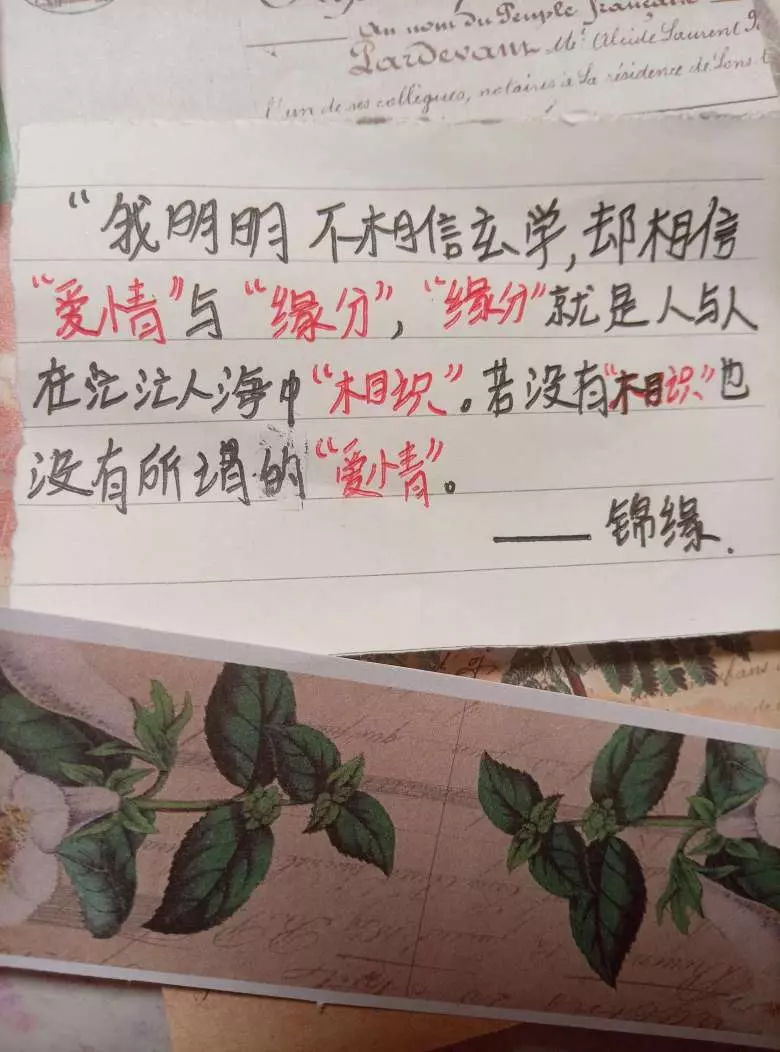 Au nom du Peuple français
Pardevant Me Alcide Laurent
l'un de ses collègues, notaires à la résidence de Lons
“我明明不相信玄学,却相信
“爱情”与“缘分”,“缘分”就是人与人
在茫茫人海中“相识”。若没有“相识”也
没有所谓的“爱情”。
——锦缘.